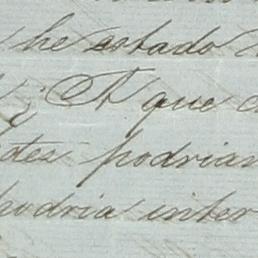 he estado
A que
des podrian
podria inter